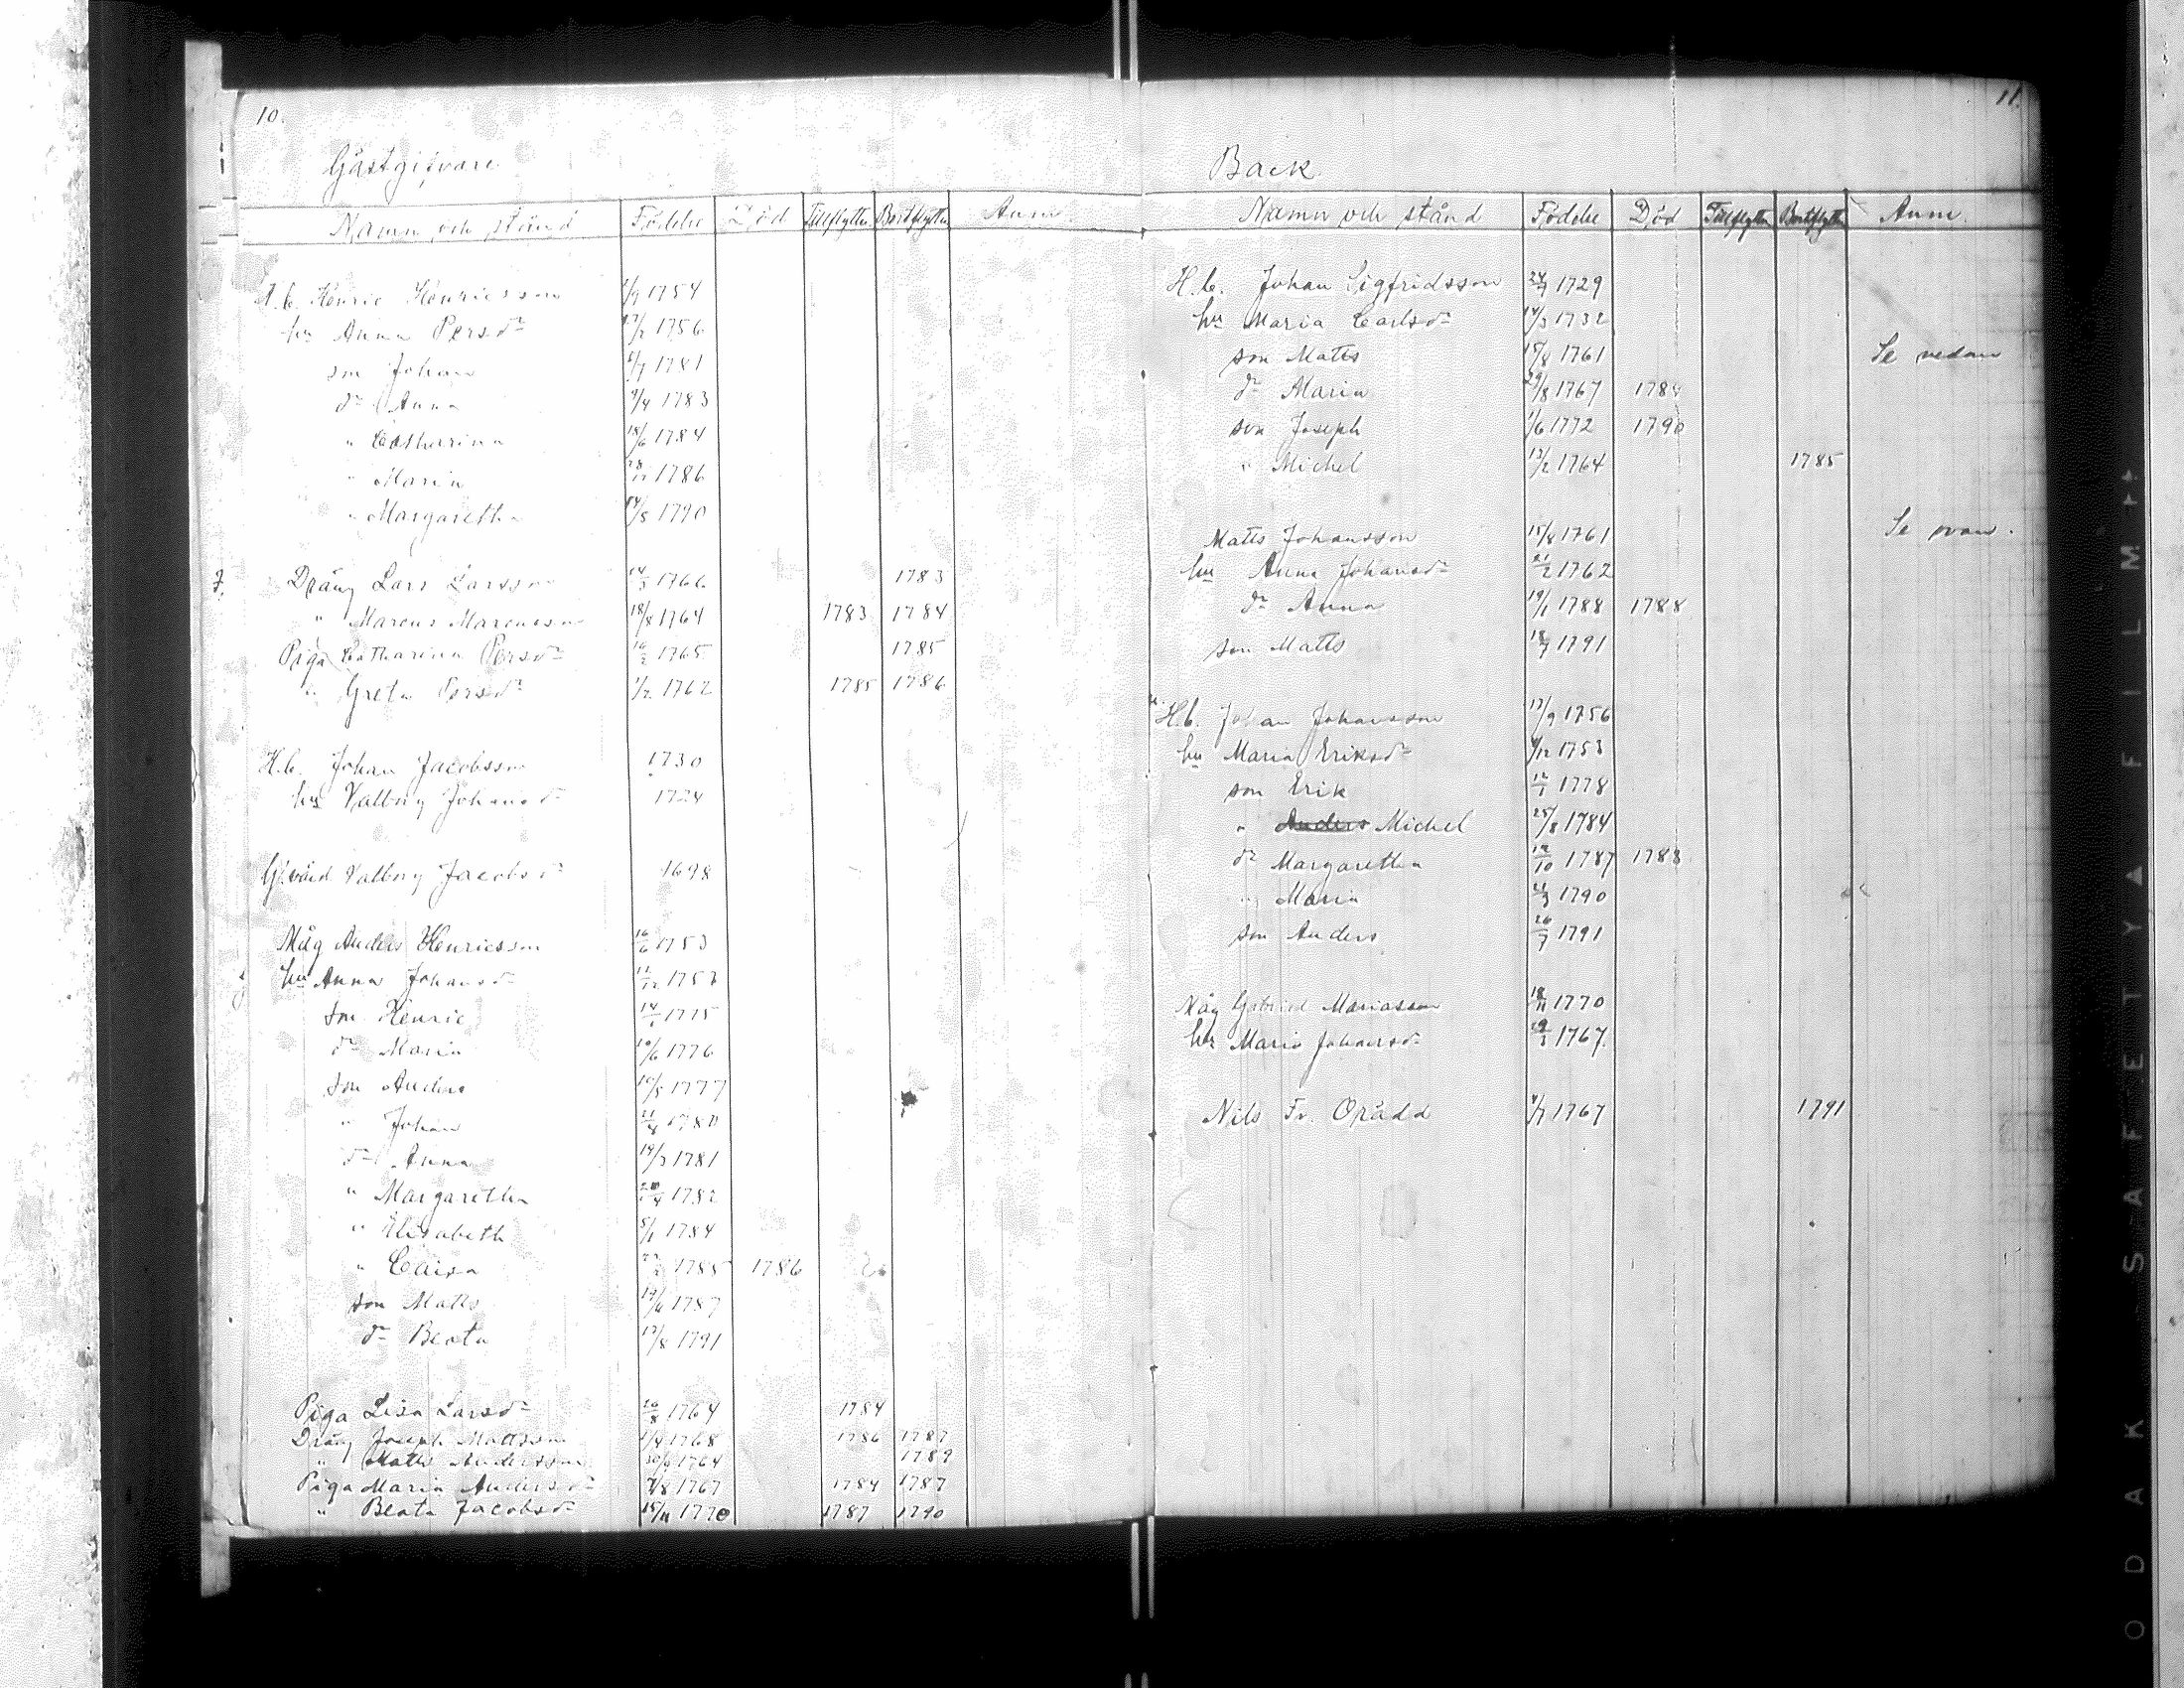 10.
Gästgifvare
Namn och stånd Födelse Död Tillflyttn Bortflyttn Anm.
H.b. Henric Henricsson 1754
hu Anna Persdr 1756
son Johan 1781
dr Anna 9/4 1783
" Catharina 18/6 1784
" Maria 1786
" Margaretha 1790
Dräng Lars Larsson 1766 1783
" Marcus Marcusson 18/8 1764 1783 1784
Piga Catharina Persdr 1765 1785
" Greta Persdr 1/2 1762 1785 1786
H.b. Johan Jacobsson 1730
hu Valborg Johansdr 1724
Valborg Jacobsdr 1698
Måg Anders Henricsson 16/6 1753
hu Anna Johansdr
son Henric 1775
dr Maria 10/6 1776
son Anders 10/5 1777
" Johan 1780
dr Anna 19/3 1781
" Margaretha 1782
" Elisabeth 1784
" Caisa 1785 1786
son Matts 1787
dr Beata 17/8 1791
Piga Lisa Larsdr 26/8 1764 1784
Dräng Joseph Mattsson 1768 1786 1787
" Matts Andersson 30/9 1764 1789
Piga Maria Andersdr 7/8 1767 1784 1787
" Beata Jacobsdr 15/11 1770 1787 1790
11.
Back
Namn och stånd Födelse Död Tillflyttn Bortflyttn Anm.
H.b. Johan Sigfridsson 1729
hu Maria Carlsdr 14/3 1732
son Matts 15/8 1761 Se nedan
dr Maria 29/8 1767 1784
son Joseph 1/6 1772 1790
" Michel 13/2 1764 1785
Matts Johansson 15/8 1761 Se ovan.
hu Anna Johansdr 21/2 1762
dr Anna 19/1 1788 1788
son Matts 18/7 1791
H.b. Johan Johansson 17/9 1756
hu Maria Eriksdr 1753
son Erik 12/1 1778
" Anders Michel 25/8 1784
dr Margaretha 12/10 1787 1788
" Maria 1790
son Anders 26/7 1791
Måg Gabriel Mariasson 18/11 1770
hu Maria Johansdr 1767
Nils Fr. Orädd 1767 1791
KODAK SAFETY FILM